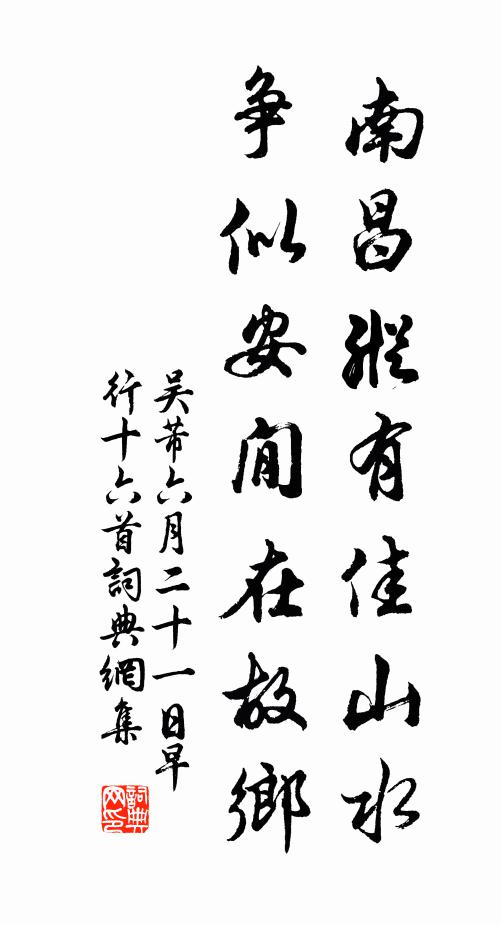 南昌縱有佳山水
争似安閒在故鄉
吴芾六月二十一日早
行十六首詞典網集
詞典网印